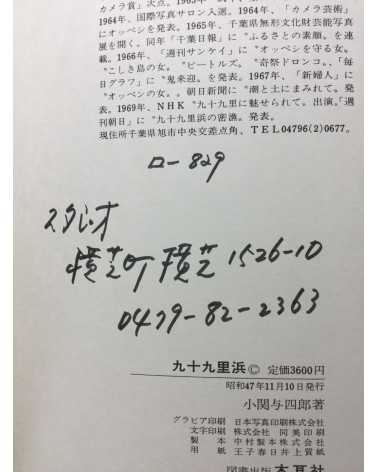 カメラ賞」次点。1963年、
1964年、国際写真サロン入選。1964年、「カメラ芸術」
にオッペシを発表。1965年、千葉県無形文化財芸能写真
展を開く。同年「千葉日報」に〝ふるさとの素顔。を連
載。1966年、「週刊サンケイ」に〝オッペシを守る女。
〝こしき島の女。〝ビートルズ。〝奇祭ドロンコ。、「毎
日グラフ」に〝鬼来迎。を発表。1967年、「新婦人」に
〝オッペシの女。。朝日新聞に〝潮と土にまみれて。発
表。1969年、NHK〝九十九里に魅せられて。出演。「週
刊朝日」に〝九十九里浜の密漁。発表。
現住所千葉県旭市中央交差点角、TEL04796(2)0677。
ロー829
スタジオ
横芝町横芝1526-10
0479-82-2363
九十九里浜© 定価3600円
昭和47年11月10日発行
小関与四郎著
グラビア印刷 日本写真印刷株式会社
文字印刷 株式会社 同美印刷
製本 中村製本株式会社
用紙 王子春日井上質紙
図書出版 木耳社